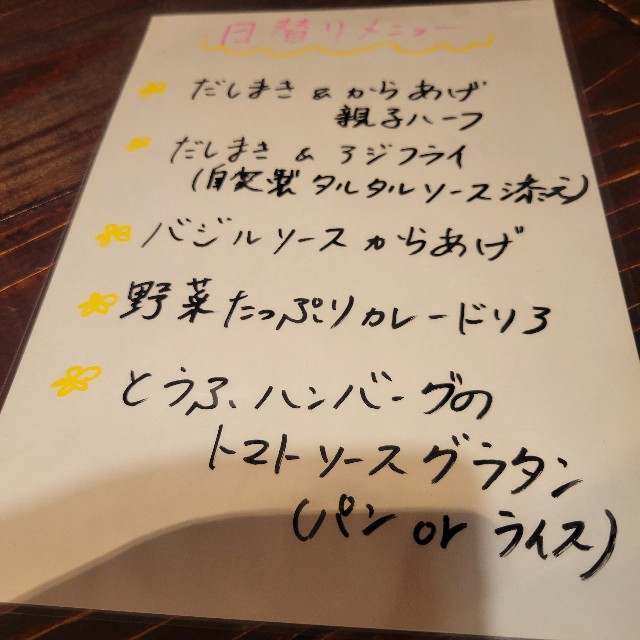 日替りメニュー
だしまき & からあげ
親子ハーフ
だしまき & アジフライ
(自家製 タルタルソース添え)
バジルソースからあげ
野菜たっぷりカレードリア
とうふハンバーグの
トマトソースグラタン
(パン or ライス)